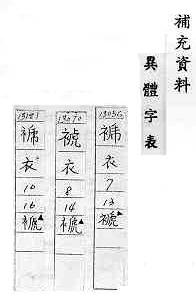 補充資料
異體字表
衣
7
13
褫▲
13070
衣
8
14
褫▲
衣
10
16
褫▲